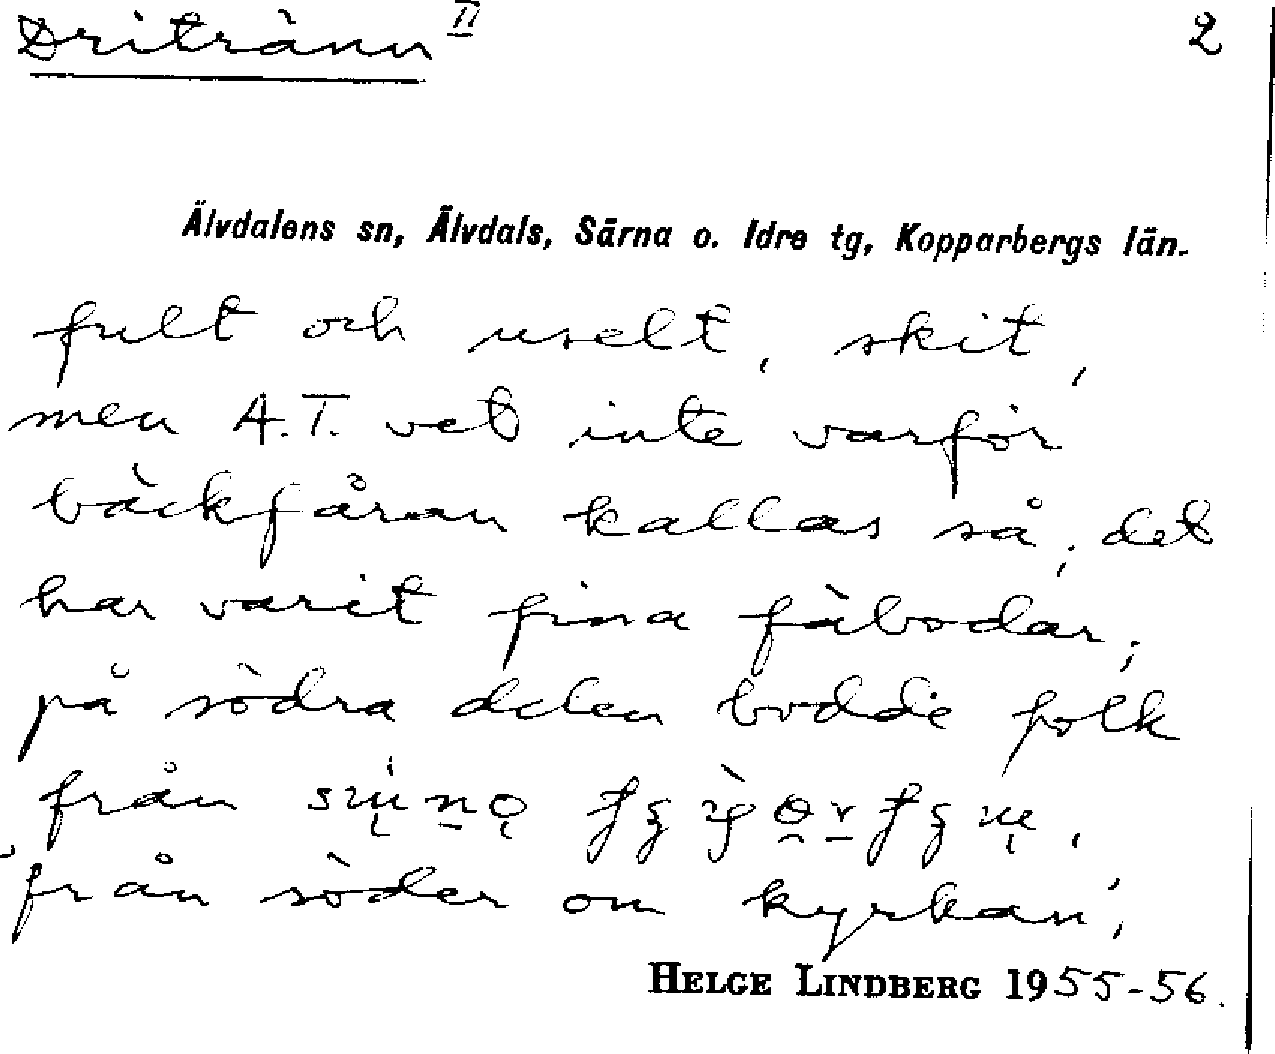 Dritränn II 2
Älvdalens sn, Älvdals, Särna o. Idre tg, Kopparbergs län.
fult och uselt, skit,
men A.T. vet inte varför
bäckfåran kallas så; det
har varit fina fäbodar;
på södra delen bodde folk
från
'från söder om kyrkan';
HELGE LINDBERG 1955-56.